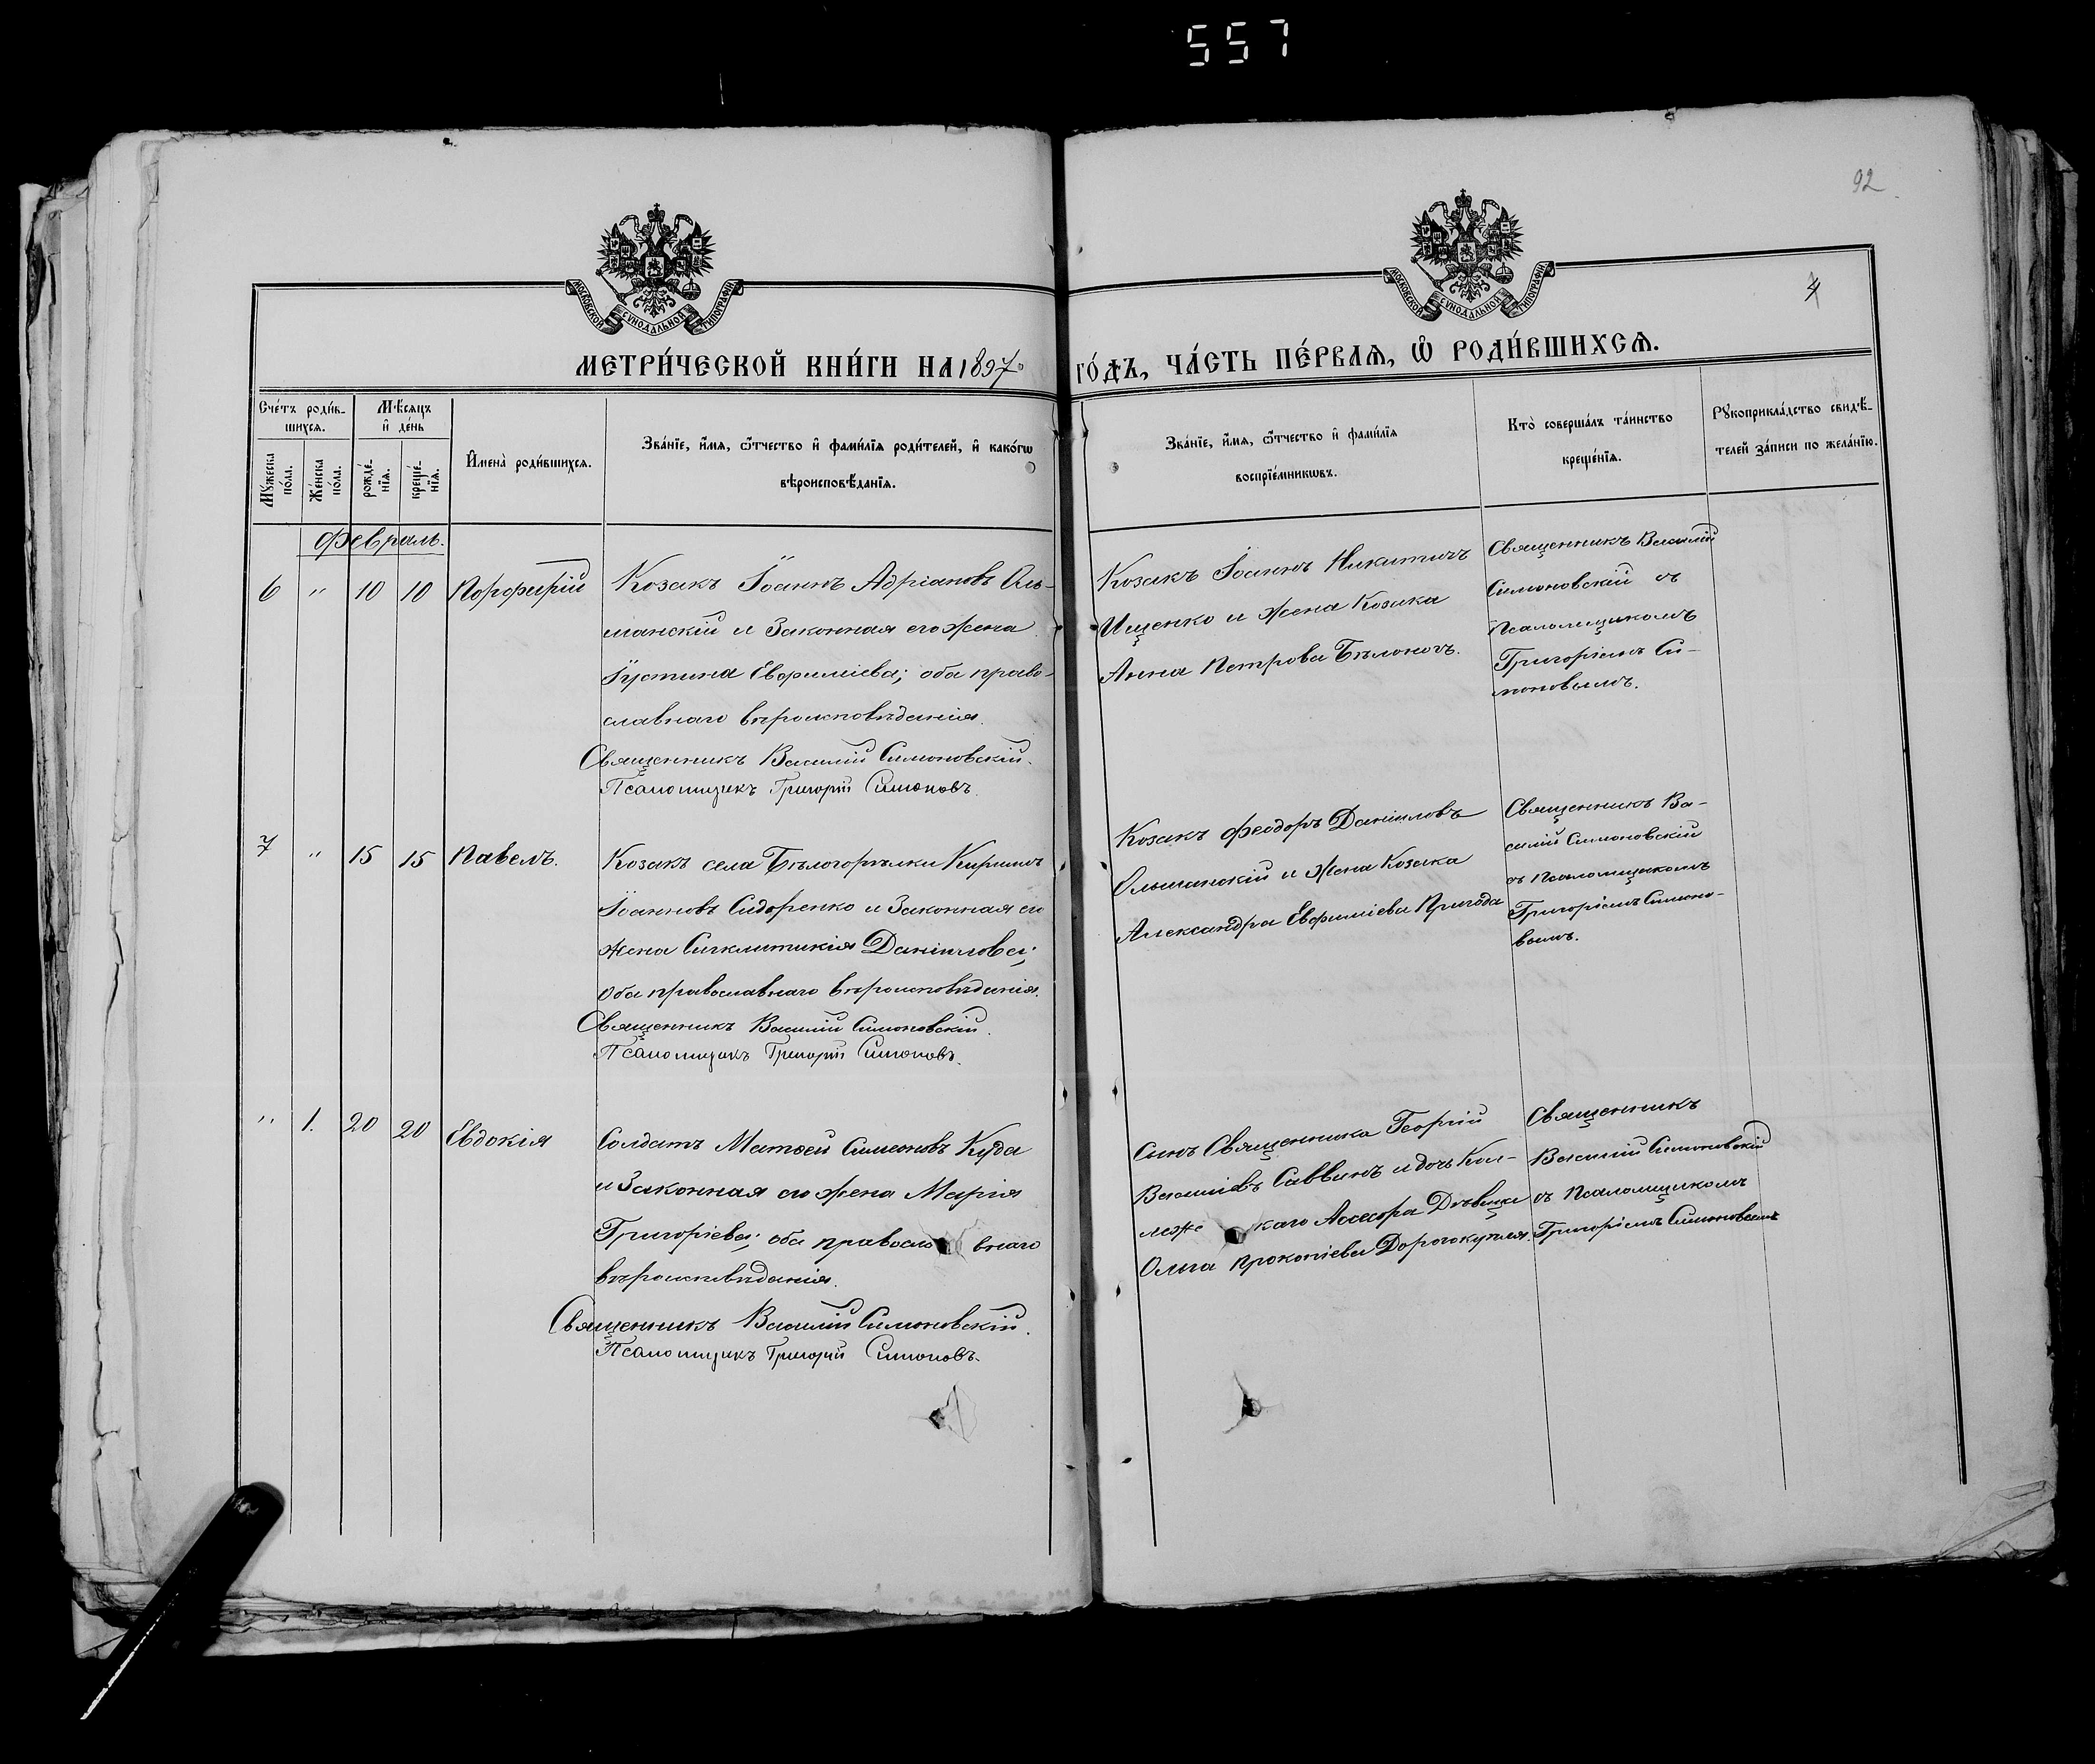 557
92
МОСКОВСКОЙ СѴНОДАЛЬНОЙ ТИПОГРАФІИ
МОСКОВСКОЙ СѴНОДАЛЬНОЙ ТИПОГРАФІИ
4
МЕТРИ́ЧЕСКОЙ КНИ́ГИ НА 1897
ГО́ДЪ, ЧА́СТЬ ПЕ́РВАѦ, Ѡ҆ РОДИ́ВШИХСѦ.
Сче́тъ роди́в-
шихсѧ.
Мꙋ́жеска по́ла.
Же́нска по́ла.
Мѣ́сѧцъ
и҆ де́нь
рожде́-
нїѧ.
креще́-
нїѧ.
И҆мена̀ роди́вшихсѧ.
Зва́нїе, и҆́мѧ, ѻ҆́тчество и҆ фами́лїѧ роди́телей, и҆ како́гѡ
вѣроисповѣ́данїѧ.
Зва́нїе, и҆́мѧ, ѻ҆́тчество и҆ фами́лїѧ
воспрїе́мникѡвъ.
Кто̀ соверша́лъ та́инство
креще́нїѧ.
Рꙋкоприкла́дство свидѣ́-
телей за́писи по жела́нїю.
Февраль.
6 " 10 10 Порфирій
Козакъ Іоаннъ Адріановъ Оль-
шанскій и Законная его жена
Іустина Евфиміева; оба право-
славнаго вѣроисповѣданія.
Священникъ Василій Симоновскій.
Псаломщикъ Григорій Симоновъ.
Козакъ Іоаннъ Никитичъ
Ищенко и жена Козака
Анна Петрова Бѣлоконь.
Священникъ Василій
Симоновскій съ
Псаломщикомъ
Григоріемъ Си-
моновымъ.
7 " 15 15 Павелъ.
Козакъ села Бѣлогорѣлки Кириллъ
Іоанновъ Сидоренко и Законная его
жена Сигклитикія Даніилова;
оба православнаго вѣроисповѣданія.
Священникъ Василій Симоновскій.
Псаломщикъ Григорій Симоновъ.
Козакъ Феодоръ Даніиловъ
Ольшанскій и жена Козака
Александра Евфиміева Пригода
Священникъ Ва-
силій Симоновскій
съ Псаломщикомъ
Григоріемъ Симоно-
вымъ.
" 1. 20 20 Евдокія
Солдатъ Матѳей Симеоновъ Куда
и Законная его жена Марія
Григоріева; оба православнаго
вѣроисповѣданія.
Священникъ Василій Симоновскій.
Псаломщикъ Григорій Симоновъ.
Сынъ Священника Георгій
Василіевъ Саввинъ и дочь Кол-
леже каго Ассесора Дѣвица
Ольга Прокопіева Дорогокупля.
Священникъ
Василій Симоновскій
съ Псаломщикомъ
Григоріемъ Симоновымъ